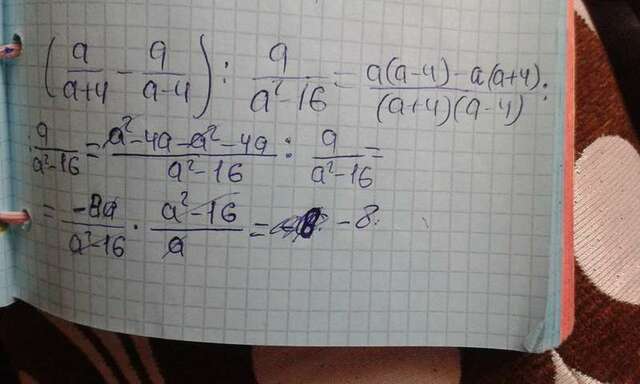 (a/(a+4) - a/(a-4)) : a/(a²-16) = (a(a-4) - a(a+4))/((a+4)(a-4)) :
: a/(a²-16) = (a²-4a-a²-4a)/(a²-16) : a/(a²-16) =
= -8a/(a²-16) · (a²-16)/a = -8.